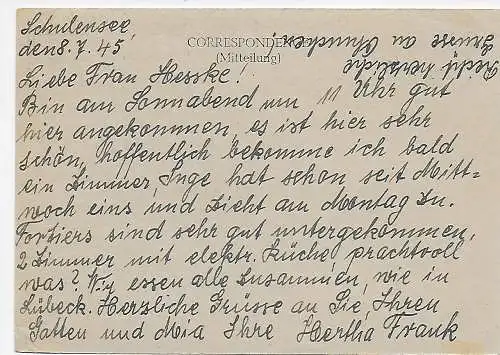 Schulensee,
den 8. 7. 45
CORRESPONDENCE
(Mitteilung)
Liebe Frau Hesske!
Bin am Sonnabend um 11 Uhr gut
hier angekommen, es ist hier sehr
schön, hoffentlich bekomme ich bald
ein Zimmer, Inge hat schon seit Mitt=
woch eins und zieht am Montag zu.
sind sehr gut untergekommen,
2 Zimmer mit elektr. Küche prachtvoll
was? Wir essen alle zusammen, wie in
Lübeck. Herzliche Grüsse an Sie, Ihren
Gatten und Mia Ihre Hertha Frank
Recht herzliche
Grüsse an